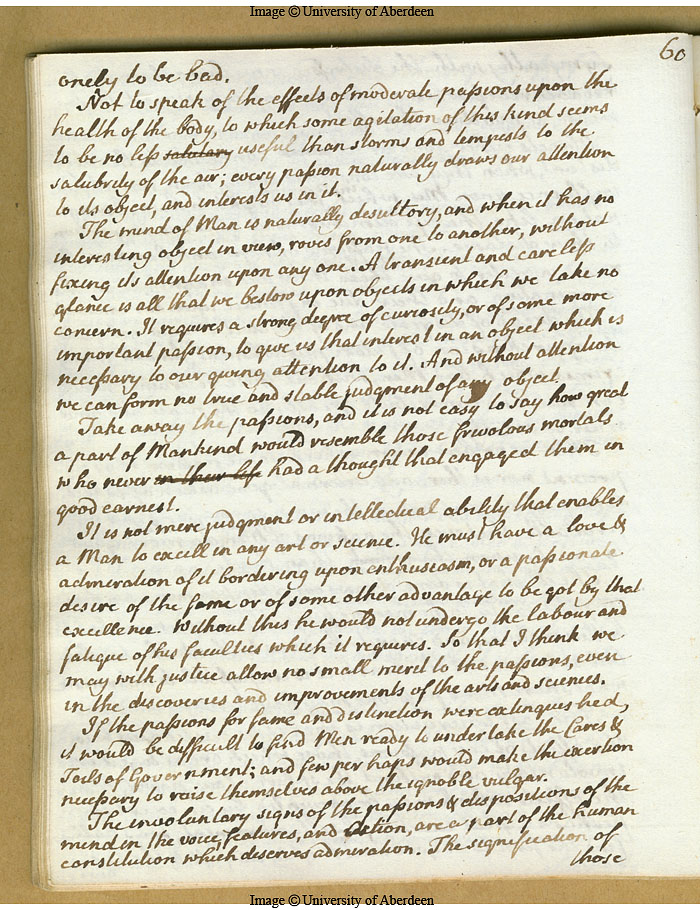 Image © University of Aberdeen
60
onely to be bad.
Not to speak of the effects of moderate passions upon the
health of the body, to which some agitation of this kind seems
to be no less salutary useful than storms and tempests to the
salubrity of the air; every passion naturally draws our attention
to its object, and interests us in it.
The mind of Man is naturally desultory, and when it has no
interesting object in view, roves from one to another, without
fixing its attention upon any one. A transient and careless
glance is all that we bestow upon objects in which we take no
concern. It requires a strong degree of curiosity, or of some more
important passion, to give us that interest in an object which is
necessary to our giving attention to it. And without attention
we can form no true and stable judgment of any object.
Take away the passions, and it is not easy to say how great
a part of Mankind would resemble those frivolous mortals
who never in their life had a thought that engaged them in
good earnest.
It is not mere judgment or intellectual ability that enables
a Man to excell in any art or science. He must have a love &
admiration of it bordering upon enthusiasm, or a passionate
desire of the fame or of some other advantage to be got by that
excellence. Without this he would not undergo the labour and
fatigue of his faculties which it requires. So that I think we
may with justice allow no small merit to the passions, even
in the discoveries and improvements of the arts and sciences.
If the passions for fame and distinction were extinguished,
it would be difficult to find Men ready to undertake the Cares &
Toils of Government; and few perhaps would make the exertion
necessary to raise themselves above the ignoble vulgar.
The involuntary signs of the passions & dispositions of the
mind in the voice, features, and action, are a part of the human
constitution which deserves admiration. The signification of
those
Image © University of Aberdeen